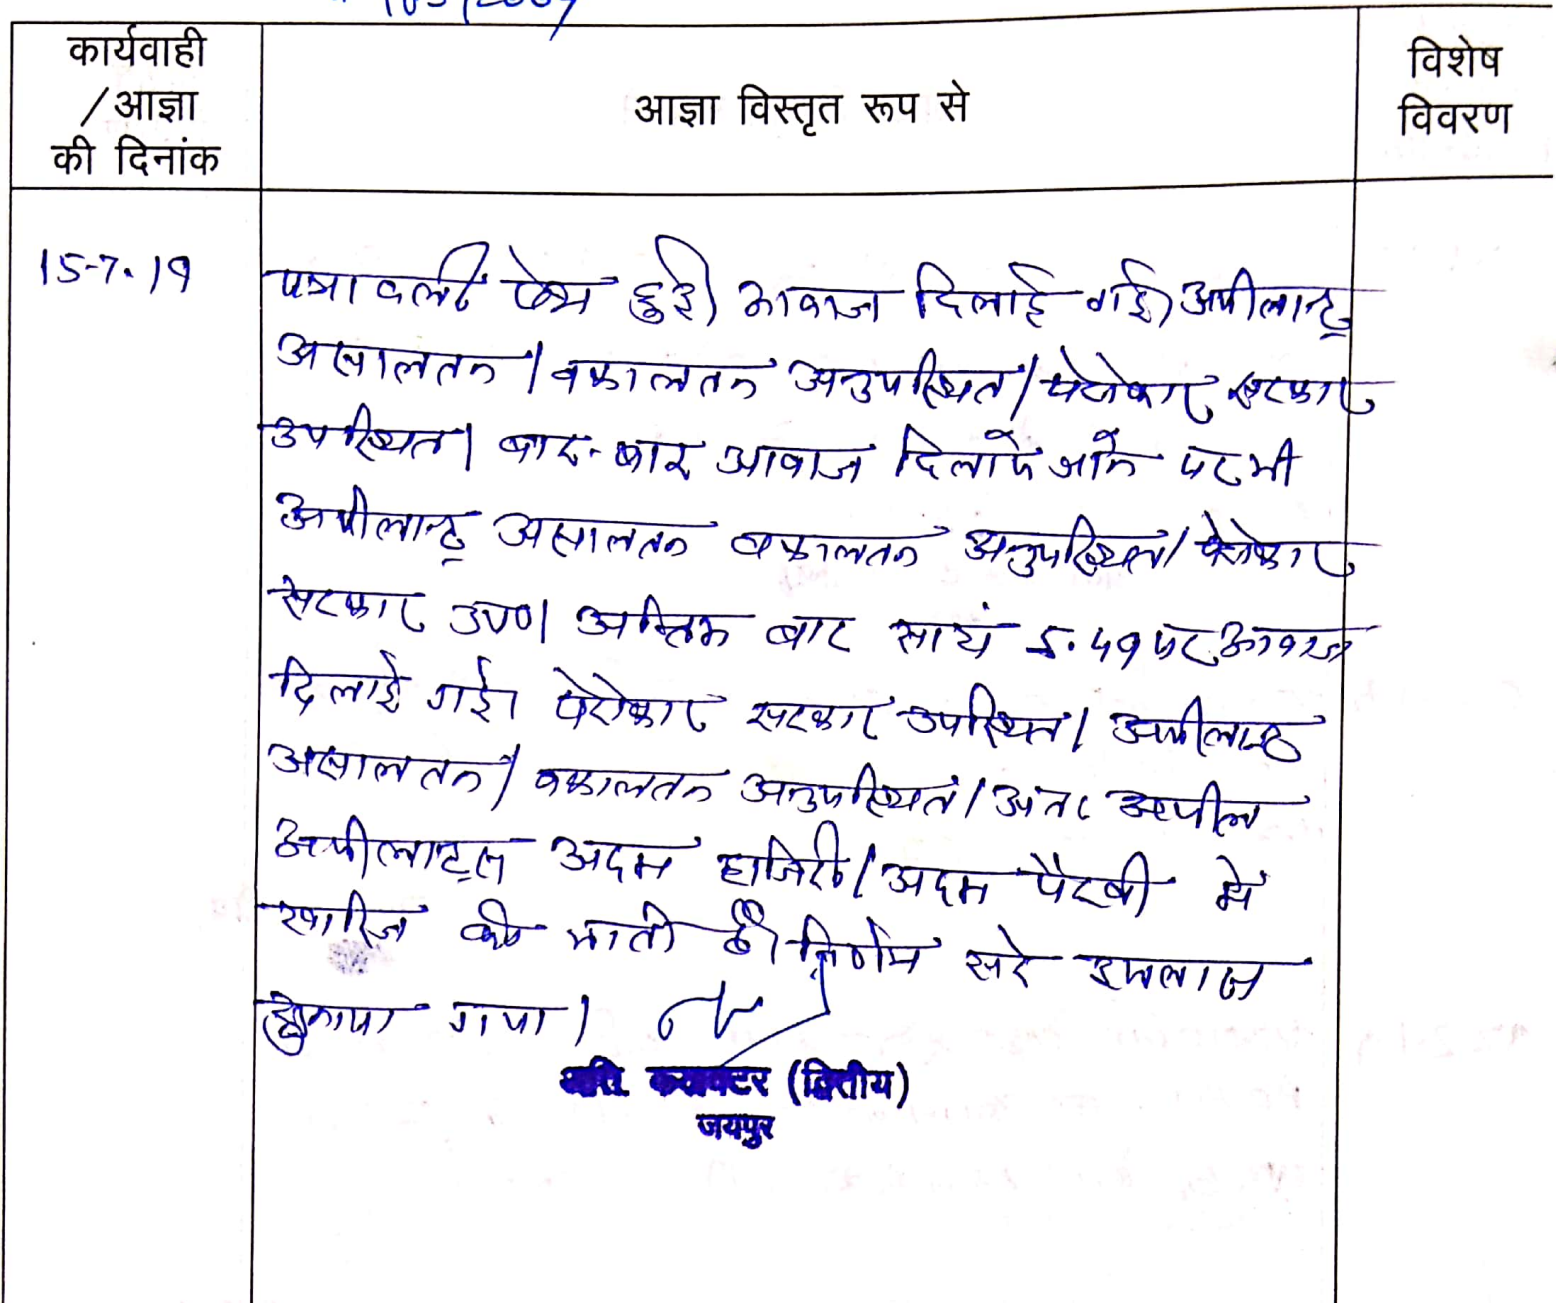 कार्यवाही
/आज्ञा
की दिनांक
आज्ञा विस्तृत रूप से
विशेष
विवरण
15-7-19
पत्रावली पेश हुई। आवाज दिलाई गई। अपीलान्ट
असालतन / वकालतन अनुपस्थित / पेरोकार सरकार
उपस्थित। बार-बार आवाज दिलाये जाने पर भी
अपीलान्ट असालतन वकालतन अनुपस्थित / पेरोकार
सरकार उप०। अन्तिम बार सायं 5.49 पर आवाज
दिलाई गई। पेरोकार सरकार उपस्थित। अपीलान्ट
असालतन / वकालतन अनुपस्थित। अतः अपील
अपीलान्ट्स अदम हाजिरी / अदम पैरवी में
खारिज की जाती है। निर्णय सरे इजलास
सुनाया गया।
अति. कलक्टर (द्वितीय)
जयपुर